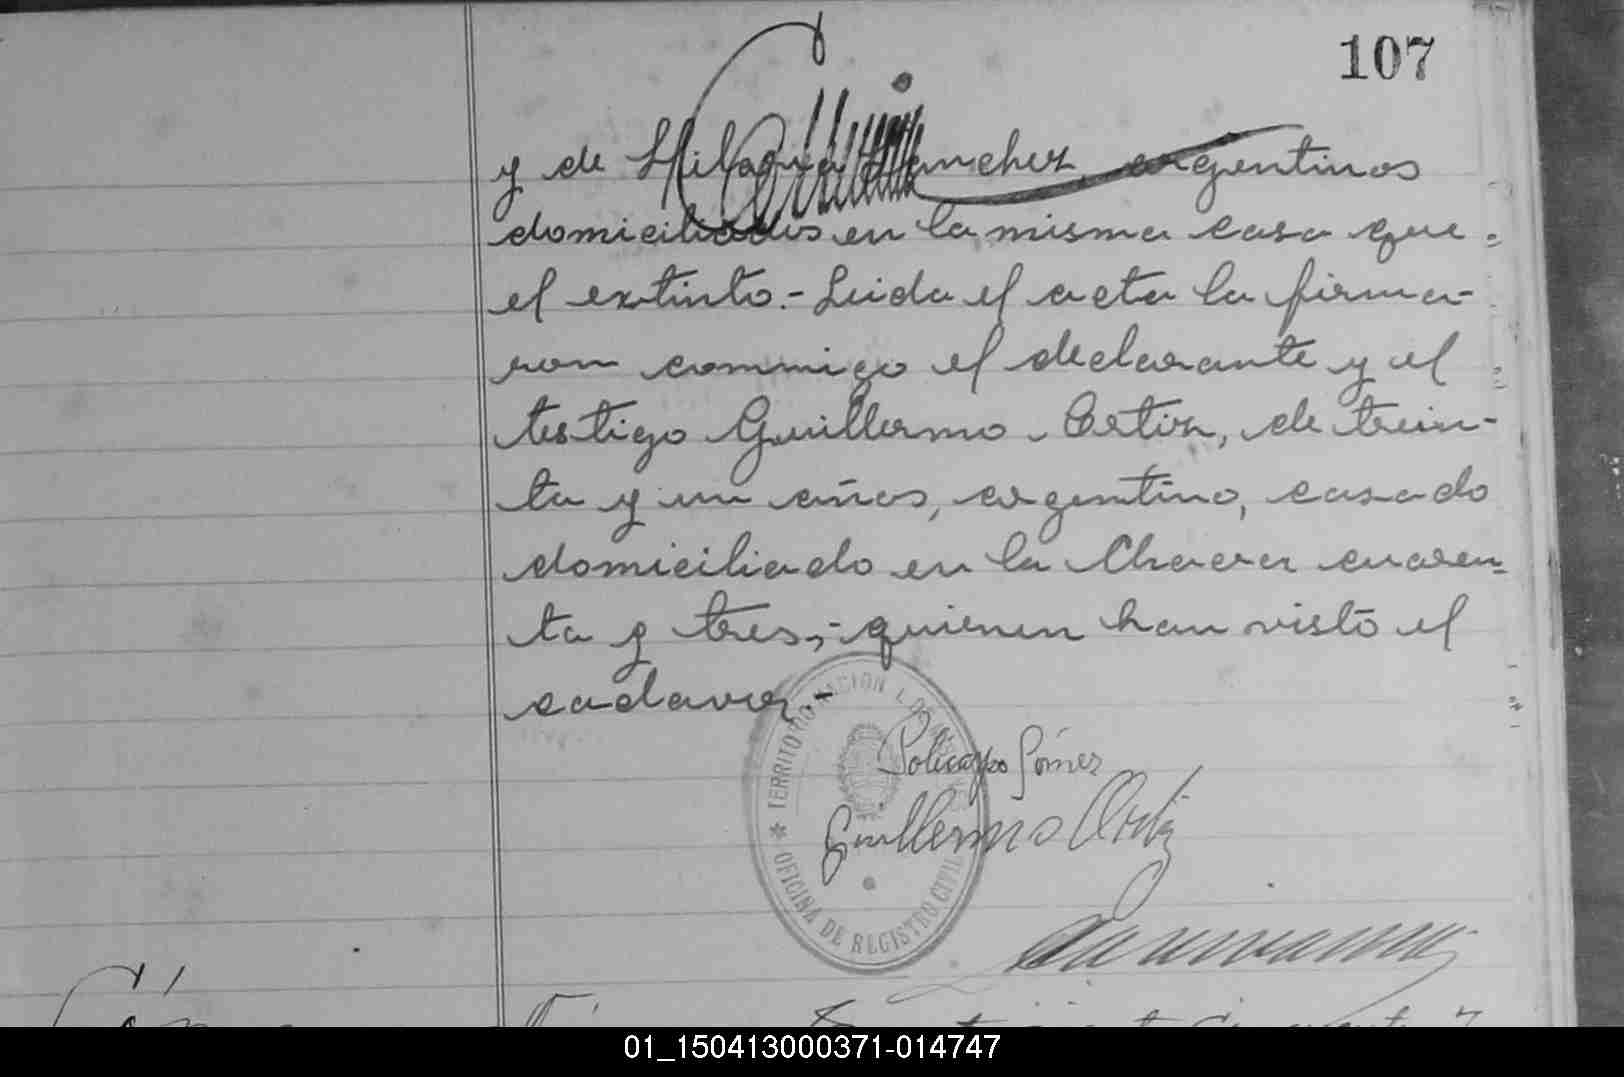 107
y de Milagra Sanchez, argentinos
domiciliados en la misma casa que
el extinto.- Leida el acta la firma-
ron conmigo el declarante y el
testigo Guillermo Ortiz, de trein-
ta y un años, argentino, casado
domiciliado en la Chacra cuaren-
ta y tres,- quienen han visto el
cadaver.-
TERRITORIO NACION L DE MISIONES
* OFICINA DE REGISTRO CIVIL
Policarpo Gómez
Guillermo Ortiz
01_150413000371-014747